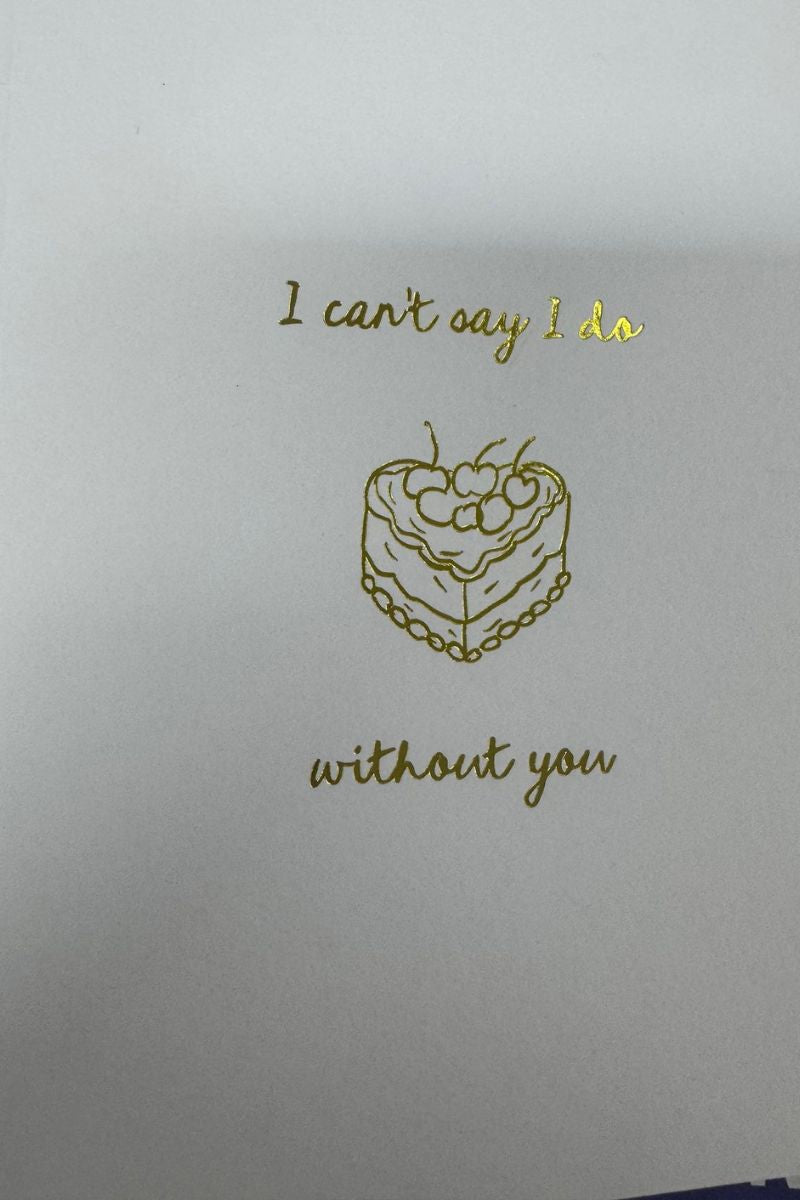 I can't say I do
without you